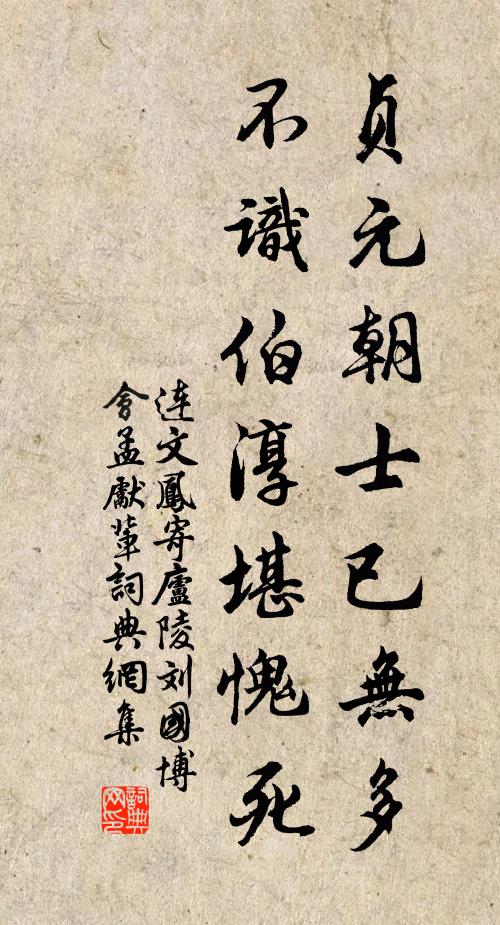 貞元朝士已無多
不識伯淳堪愧死
連文鳳寄廬陵刘國博
會孟獻輩詞典網集
詞典
网印